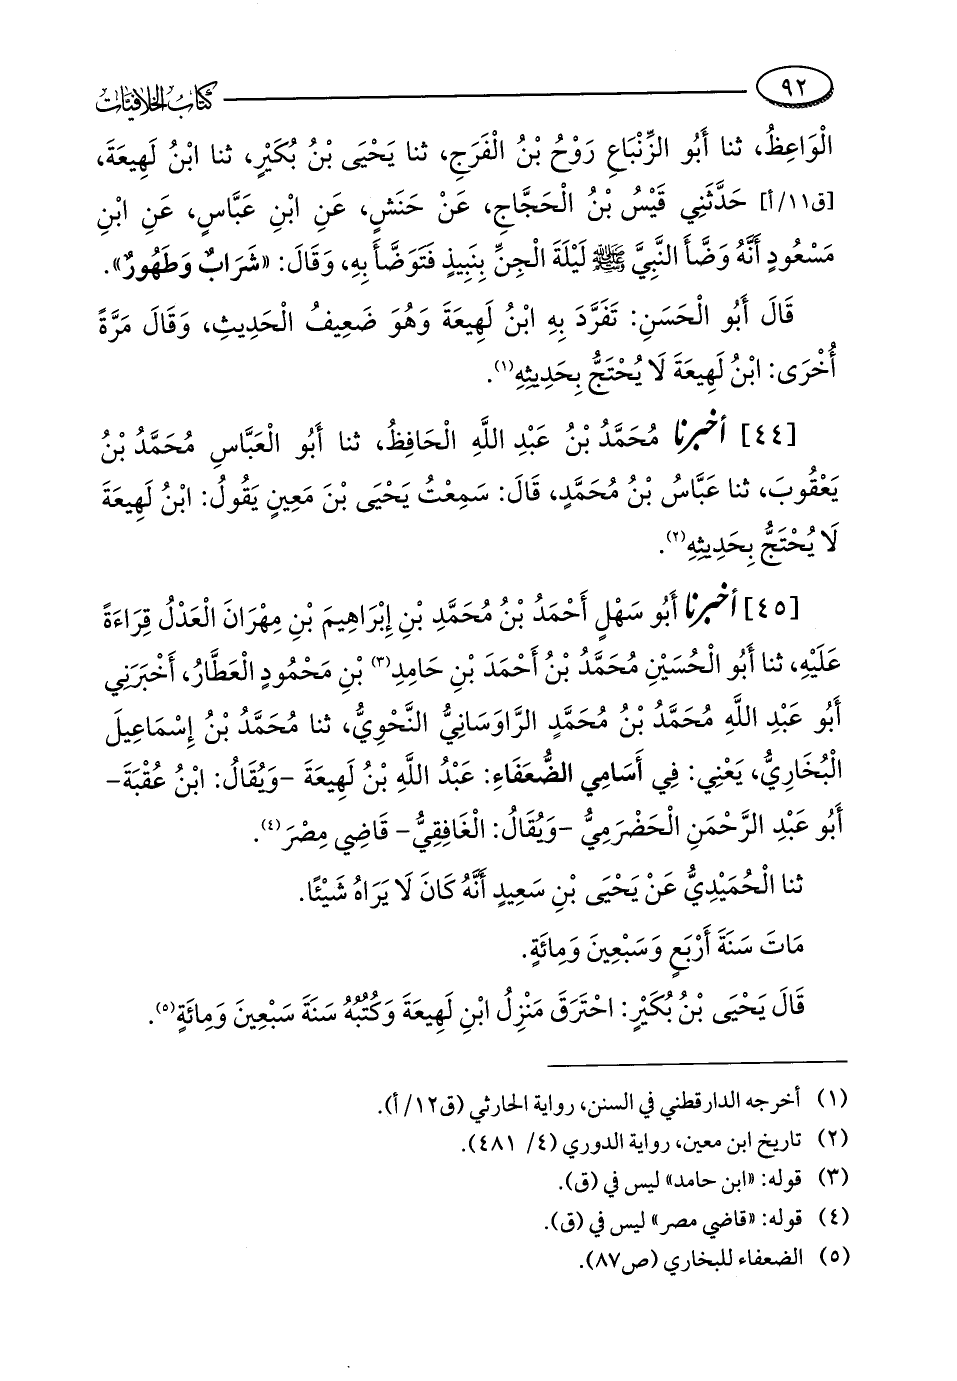 ٩٢ كتاب الخلافيات
الْوَاعِظُ، ثنا أَبُو الزِّنْبَاعِ رَوْحُ بْنُ الْفَرَجِ، ثنا يَحْيَى بْنُ بُكَيْرٍ، ثنا ابْنُ لَهِيعَةَ،
[ق١١/أ] حَدَّثَنِي قَيْسُ بْنُ الْحَجَّاجِ، عَنْ حَنَشٍ، عَنِ ابْنِ عَبَّاسٍ، عَنِ ابْنِ
مَسْعُودٍ أَنَّهُ وَضَّأَ النَّبِيَّ ﷺ لَيْلَةَ الْجِنِّ بِنَبِيذٍ فَتَوَضَّأَ بِهِ، وَقَالَ: «شَرَابٌ وَطَهُورٌ».
قَالَ أَبُو الْحَسَنِ: تَفَرَّدَ بِهِ ابْنُ لَهِيعَةَ وَهُوَ ضَعِيفُ الْحَدِيثِ، وَقَالَ مَرَّةً
أُخْرَى: ابْنُ لَهِيعَةَ لَا يُحْتَجُّ بِحَدِيثِهِ(١).
[٤٤] أخبرنا مُحَمَّدُ بْنُ عَبْدِ اللَّهِ الْحَافِظُ، ثنا أَبُو الْعَبَّاسِ مُحَمَّدُ بْنُ
يَعْقُوبَ، ثنا عَبَّاسُ بْنُ مُحَمَّدٍ، قَالَ: سَمِعْتُ يَحْيَى بْنَ مَعِينٍ يَقُولُ: ابْنُ لَهِيعَةَ
لَا يُحْتَجُّ بِحَدِيثِهِ(٢).
[٤٥] أخبرنا أَبُو سَهْلٍ أَحْمَدُ بْنُ مُحَمَّدِ بْنِ إِبْرَاهِيمَ بْنِ مِهْرَانَ الْعَدْلُ قِرَاءَةً
عَلَيْهِ، ثنا أَبُو الْحُسَيْنِ مُحَمَّدُ بْنُ أَحْمَدَ بْنِ حَامِدِ(٣) بْنِ مَحْمُودٍ الْعَطَّارُ، أَخْبَرَنِي
أَبُو عَبْدِ اللَّهِ مُحَمَّدُ بْنُ مُحَمَّدٍ الرَّاوَسَانِيُّ النَّحْوِيُّ، ثنا مُحَمَّدُ بْنُ إِسْمَاعِيلَ
الْبُخَارِيُّ، يَعْنِي: فِي أَسَامِي الضُّعَفَاءِ: عَبْدُ اللَّهِ بْنُ لَهِيعَةَ -وَيُقَالُ: ابْنُ عُقْبَةَ-
أَبُو عَبْدِ الرَّحْمَنِ الْحَضْرَمِيُّ -وَيُقَالُ: الْغَافِقِيُّ- قَاضِي مِصْرَ(٤).
ثنا الْحُمَيْدِيُّ عَنْ يَحْيَى بْنِ سَعِيدٍ أَنَّهُ كَانَ لَا يَرَاهُ شَيْئًا.
مَاتَ سَنَةَ أَرْبَعٍ وَسَبْعِينَ وَمِائَةٍ.
قَالَ يَحْيَى بْنُ بُكَيْرٍ: احْتَرَقَ مَنْزِلُ ابْنِ لَهِيعَةَ وَكُتُبُهُ سَنَةَ سَبْعِينَ وَمِائَةٍ(٥).
(١) أخرجه الدارقطني في السنن، رواية الحارثي (ق١٢/أ).
(٢) تاريخ ابن معين، رواية الدوري (٤/ ٤٨١).
(٣) قوله: «ابن حامد» ليس في (ق).
(٤) قوله: «قاضي مصر» ليس في (ق).
(٥) الضعفاء للبخاري (ص٨٧).